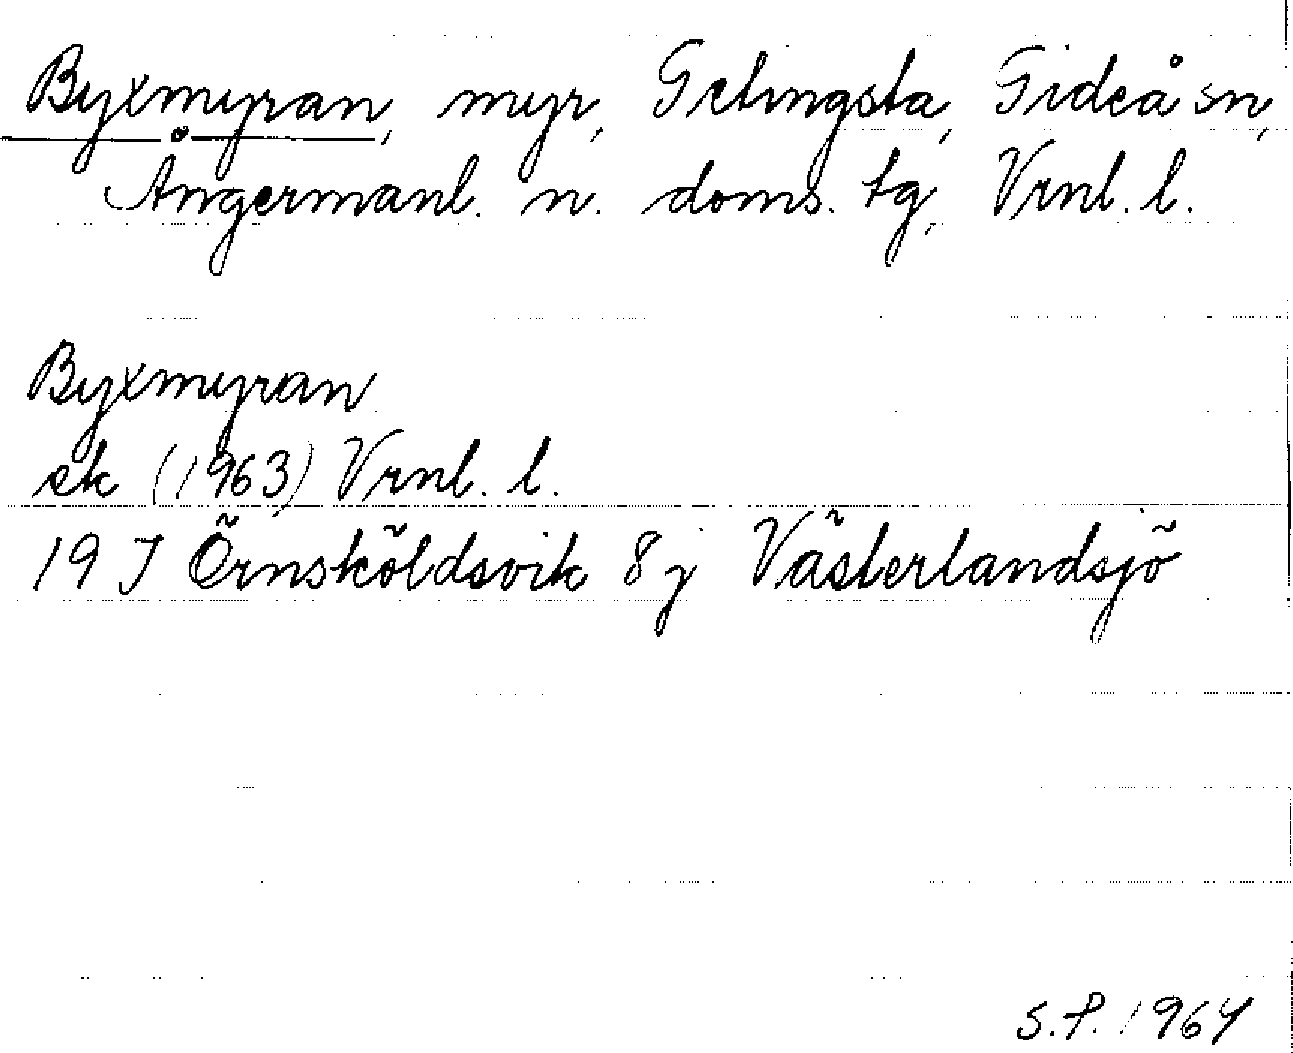 Byxmyran, myr, Getingsta, Gideå sn,
Ångermanl. n. doms. tg, Vrnl. l.
Byxmyran
ek (1963) Vrnl. l.
19 J Örnsköldsvik 8 j Västerlandsjö
S.P. 1964